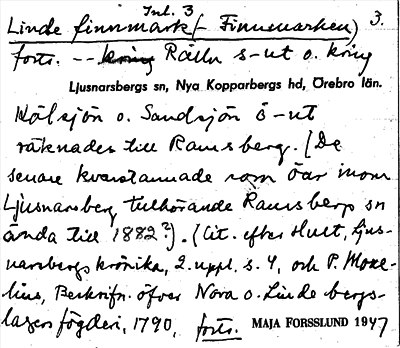 Inl. 3
Linde finnmark (- Finnmarken) 3.
forts. -- kring Rälln s-ut o. kring
Ljusnarsbergs sn, Nya Kopparbergs hd, Örebro län.
Hölsjön o. Sandsjön ö-ut
räknades till Ramsberg. (De
senare kvarstannade som öar inom
Ljusnarsberg tillhörande Ramsbergs sn
ända till 1882?). (Cit. efter Hult, Ljus-
narsbergs krönika, 2. uppl. s. 4, och P. Moxe-
lius, Beskrifn. öfver Nora o. Linde bergs-
lagers fögderi, 1790, forts. MAJA FORSSLUND 1947